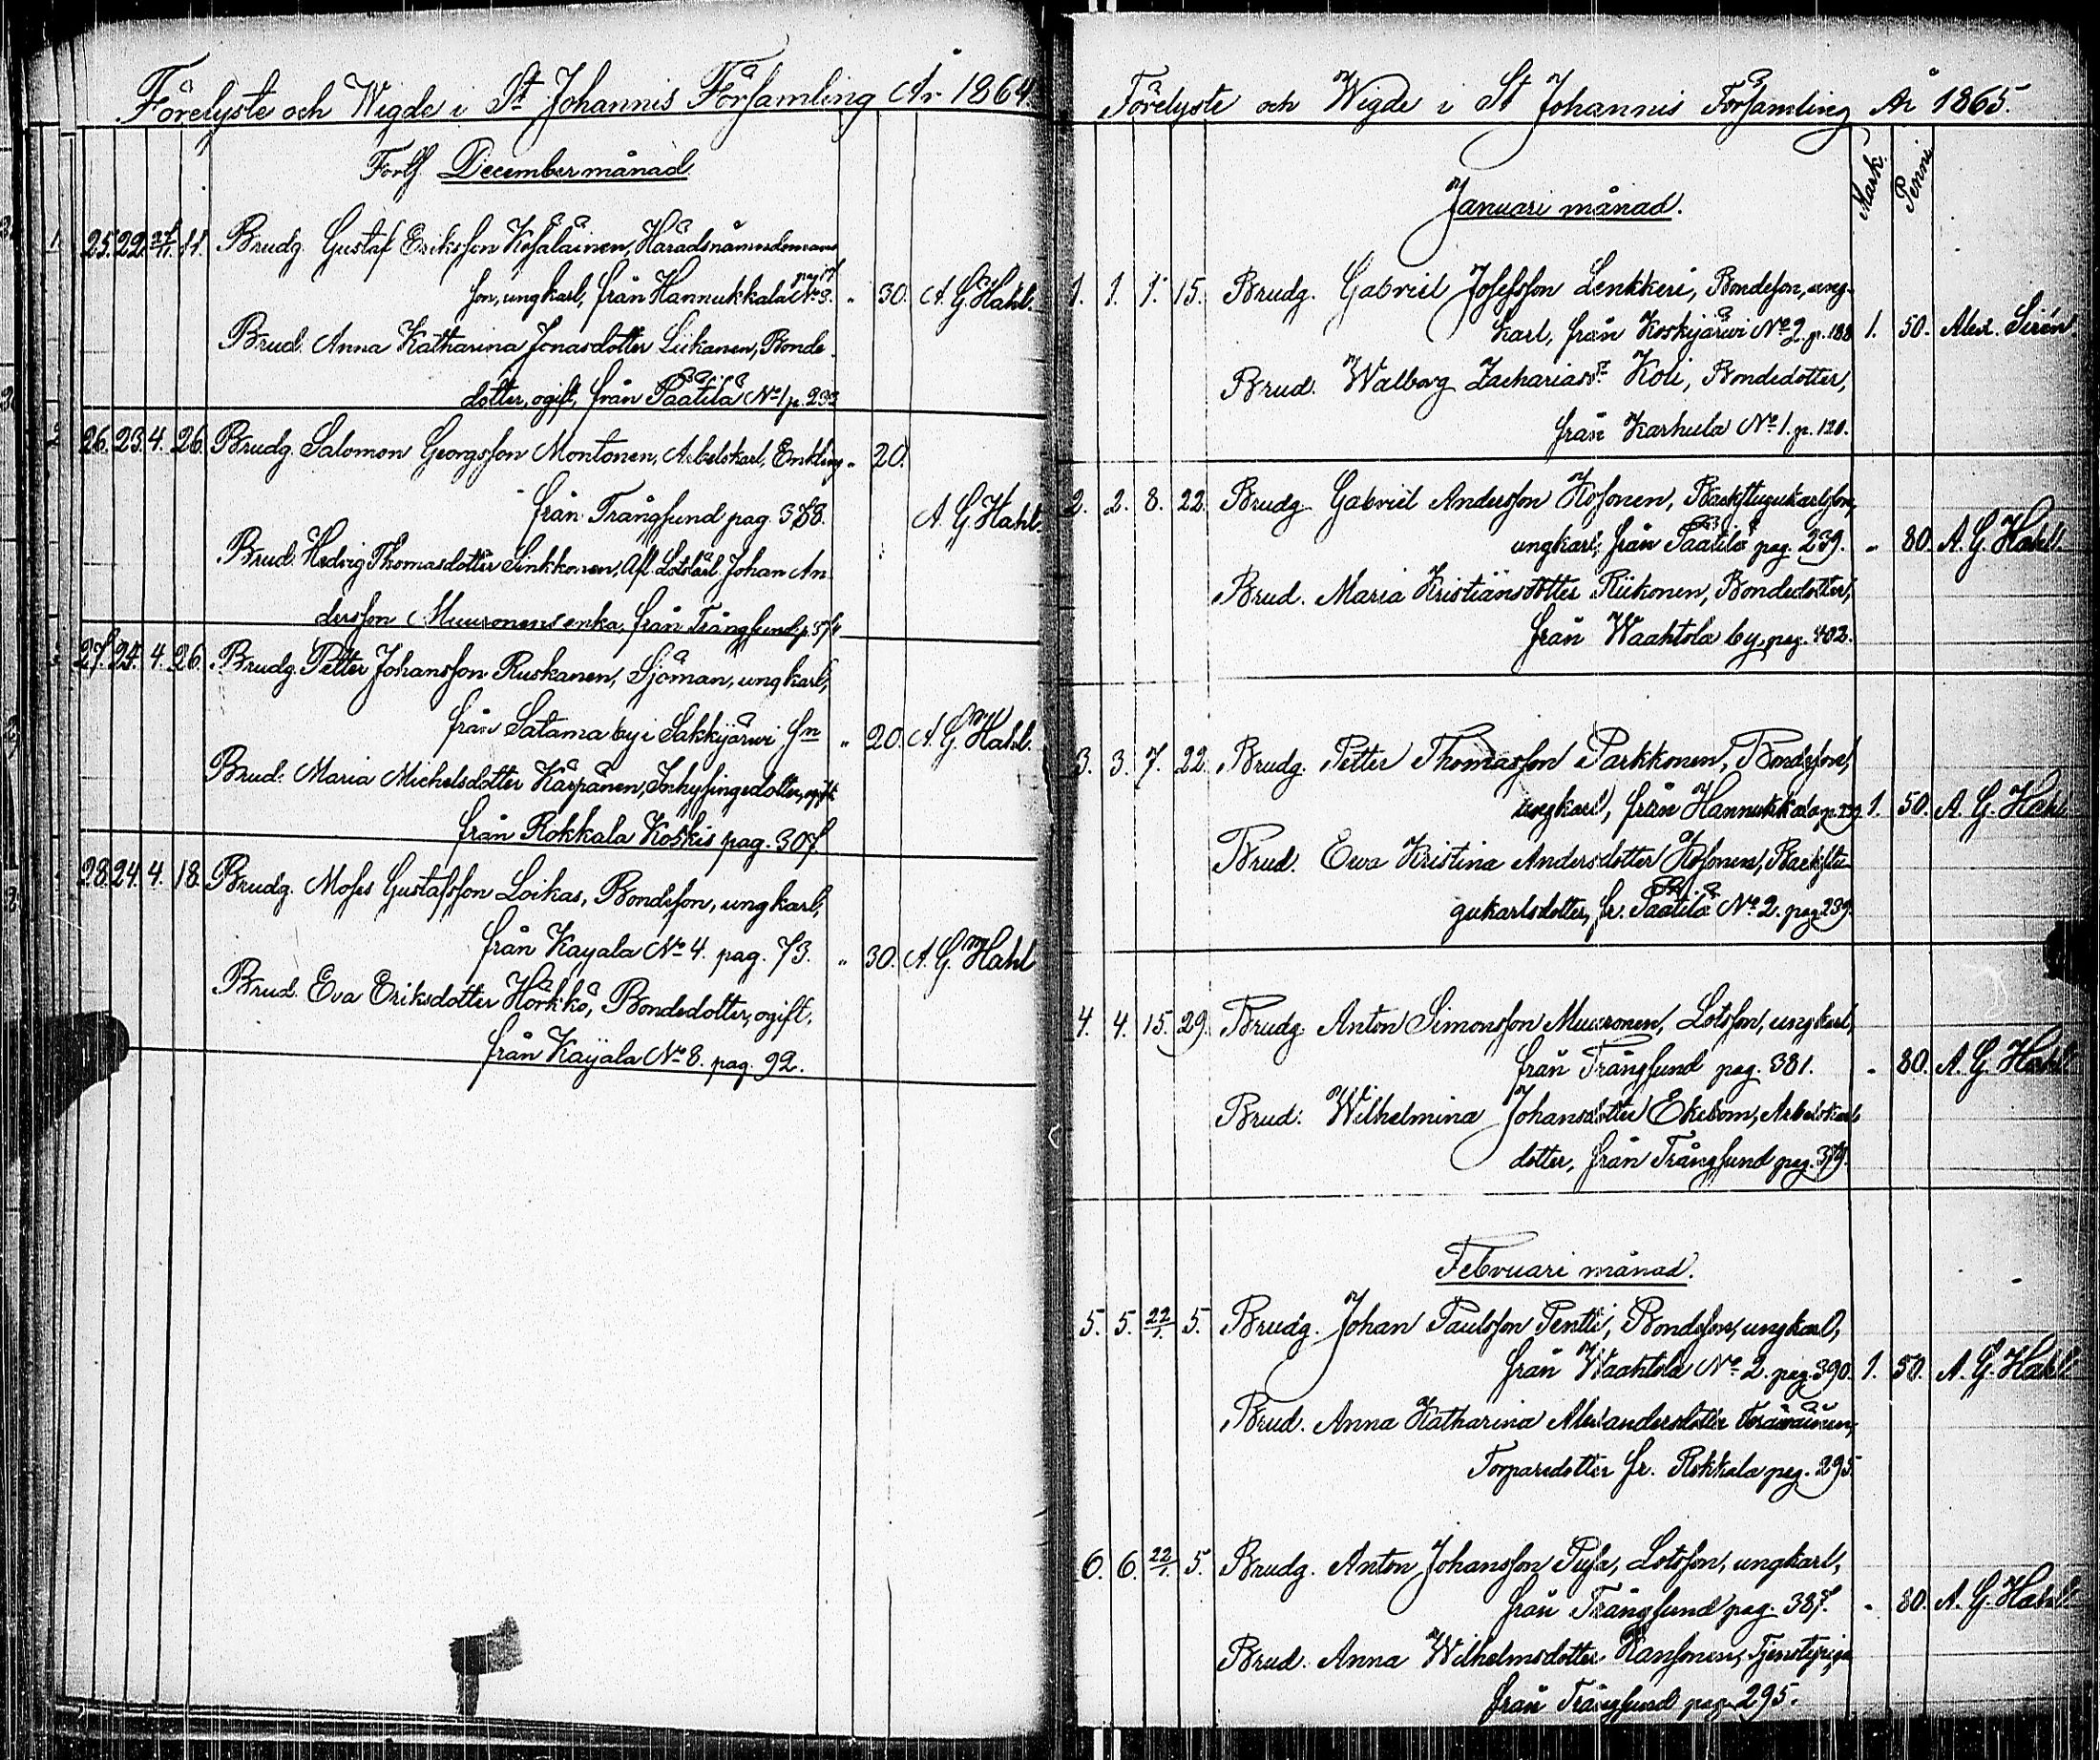 Förelyste och Wigde i St Johannis Församling År 1864.
Forts. December månad
1. 25. 22. 27/11. 11. Brudg. Gustaf Eriksson Kosalainen, Häradsnämndemans
son, ungkarl, från Hannukkala No 3. " 30. A. G. Hahl.
Brud. Anna Katharina Jonasdotter Liikanen, Bonde
dotter, ogift, från Päätilä No 1 p. 233
2 26. 23. 4. 26. Brudg. Salomon Georgsson Montonen, Arbetskarl, Enkling " 20.
från Trångsund pag. 388. A. G. Hahl.
Brud. Hedvig Thomasdotter Sinkkonen, Afl. Johan An
dersson Muuronens enka, från Trångsund p.
27. 24. 4. 26. Brudg. Petter Johansson Ruskanen, Sjöman, ungkarl,
från Satama by i Säkkijärwi Sn " 20. A. G. Hahl.
Brud. Maria Michelsdotter Kärpänen, Inhysingedotter, ogift
från Rokkala Koskis pag. 307.
28. 24. 4. 18. Brudg. Moses Gustafsson Loikas, Bondeson, ungkarl,
från Kaÿala No 4. pag. 73. " 30. A. G. Hahl
Brud. Eva Eriksdotter Hörkkö, Bondedotter, ogift,
från Kaÿala No 8. pag. 92.
Förelyste och Wigde i St Johannis Församling År 1865.
Mark. Penni
Januari månad.
1. 1. 1. 15. Brudg. Gabriel Josefsson Lenkkeri, Bondeson, ung-
karl, från Koskijärwi No 2. p. 188 1. 50. Alex. Sirén
Brud. Walborg Zachariasdr Koli, Bondedotter,
från Karhula No 1. p. 120.
2. 2. 8. 22. Brudg. Gabriel Andersson Kosonen, Backstugukarlsson,
ungkarl, från Päätilä pag. 239. " 80. A. G. Hahl.
Brud. Maria Kristiansdotter Riikonen, Bondedotter,
från Waahtola by, pag. 402.
3. 3. 7. 22. Brudg. Petter Thomasson Parkkonen, Bondeson,
ungkarl, från Hannukkala 1. 50. A. G. Hahl
Brud. Ewa Kristina Andersdotter Kosonen, Backstu-
gukarlsdotter, fr. Päätilä No 2. pag. 239.
4. 4. 15. 29. Brudg. Anton Simonsson Muuronen, Lotsson, ungkarl,
från Trångsund pag. 381. " 80. A. G. Hahl
Brud: Wilhelmina Johansdotter Ekebom, Arbetskarls
dotter, från Trångsund pag. 379.
Februari månad.
5. 5. 22/1. 5. Brudg. Johan Paulsson Pentti, Bondeson, ungkarl,
från Waahtola No 2. pag. 390. 1. 50. A. G. Hahl
Brud. Anna Katharina Alexandersdotter
Torparedotter fr. Rokkala pag. 295.
6. 6. 22/1. 5. Brudg. Anton Johansson Pusa, Lotsson, ungkarl,
från Trångsund pag. 387. " 80. A. G. Hahl
Brud. Anna Wilhelmsdotter Kansonen, Tjenstepiga
från Trångsund pag. 295.